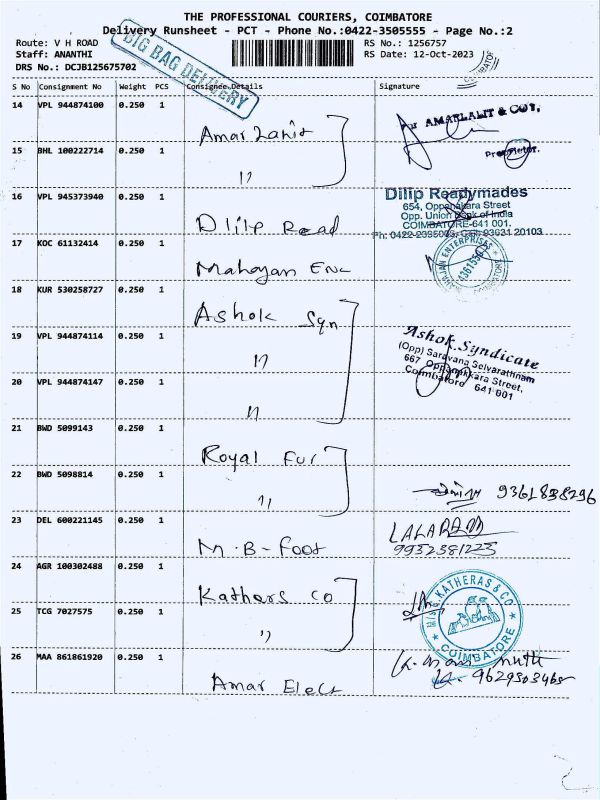 THE PROFESSIONAL COURIERS, COIMBATORE
Delivery Runsheet - PCT - Phone No.:0422-3505555 - Page No.:2
Route: V H ROAD
Staff: ANANTHI
DRS No.: DCJB125675702
BIG BAG DELIVERY
RS No.: 1256757
RS Date: 12-Oct-2023
S No Consignment No Weight PCS Consignee Details Signature
14 VPL 944874100 0.250 1
Amar Lalit
For AMARLALIT & COY.
Proprietor.
15 BHL 100222714 0.250 1
"
16 VPL 945373940 0.250 1
Dilip Read
Dilip Readymades
654, Oppanakara Street
Opp. Union Bank of India
COIMBATORE-641 001.
17 KOC 61132414 0.250 1
Mahajan Enc
MAHAJAN ENTERPRISES
COIMBATORE
18 KUR 530258727 0.250 1
Ashok Syn
19 VPL 944874114 0.250 1
"
Ashok Syndicate
(Opp) Saravana Selvarathnam
667 Oppanakkara Street,
Coimbatore 641 001
20 VPL 944874147 0.250 1
"
21 BWD 5099143 0.250 1
Royal Fur
22 BWD 5098814 0.250 1
"
23 DEL 600221145 0.250 1
M.B-Foot
LALARAM
24 AGR 100302488 0.250 1
Kathers co
M/S. KATHERAS & CO
COIMBATORE
25 TCG 7027575 0.250 1
"
26 MAA 861861920 0.250 1
Amar Elect